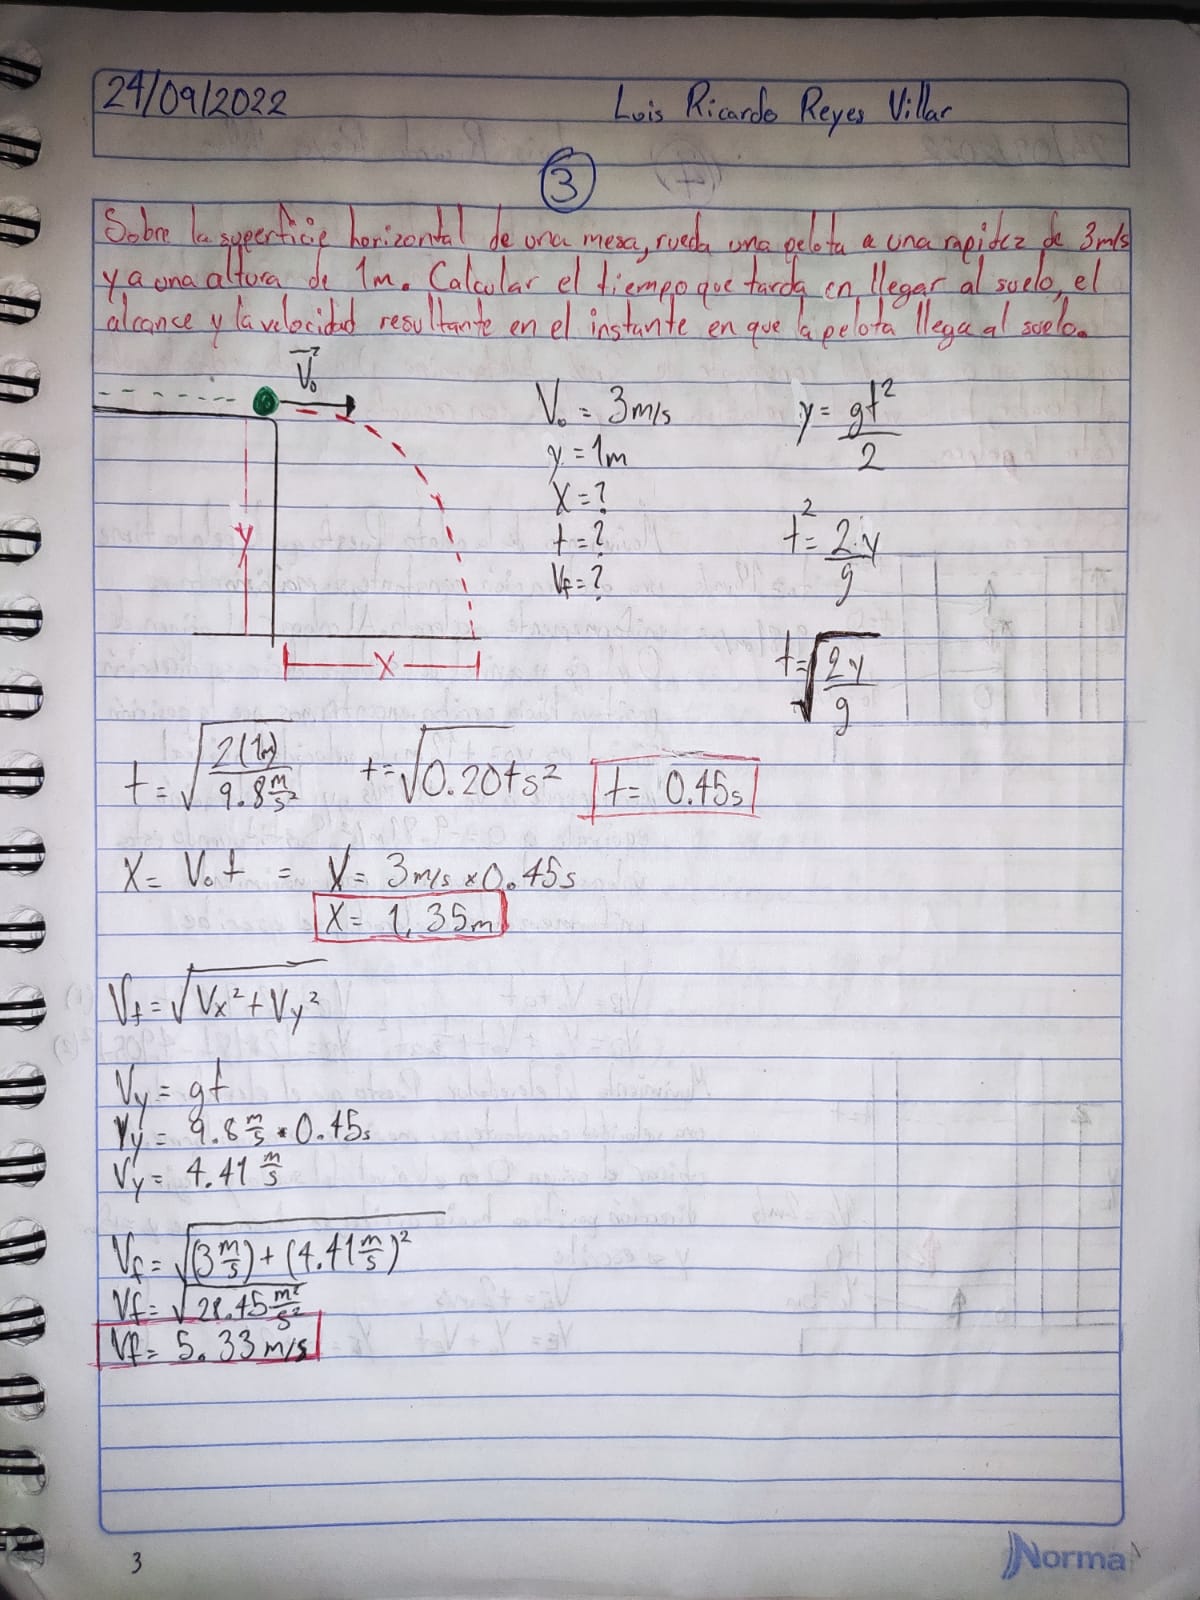 24/09/2022 Luis Ricardo Reyes Villar
3
Sobre la superficie horizontal de una mesa, rueda una pelota a una rapidez de 3m/s
y a una altura de 1m. Calcular el tiempo que tarda en llegar al suelo, el
alcance y la velocidad resultante en el instante en que la pelota llega al suelo.
V₀
V₀ = 3m/s
y = 1m
X = ?
t = ?
Vf = ?
y = gt²/2
t² = 2·y/g
t = √(2y/g)
y
X
t = √(2(1m)/9.8 m/s²) t = √0.20ts² t = 0.45s
X = V₀t = X = 3m/s × 0.45s
X = 1,35m
Vf = √Vx² + Vy²
Vy = gt
Vy = 9.8 m/s • 0.45s
Vy = 4.41 m/s
Vf = √(3 m/s) + (4.41 m/s)²
Vf = √28.45 m²/s²
Vf = 5.33 m/s
3
Norma